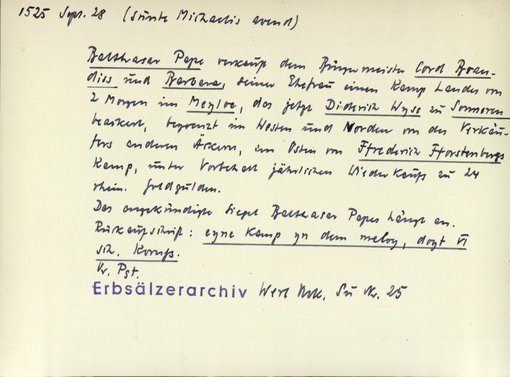 1525 Sept. 28 (Sünte Michaelis avend)
Balthasar Pape verkauft dem Bürgermeister Cord Bran-
dies und Barbara, seiner Ehefrau einen Kamp Landes von
2 Morgen im Meyloe, das jetzt Diderich Wyse zu Sonneren
beackert, begrenzt im Westen und Norden von des Verkäu-
fers anderen Äckern, im Osten von Ffrederich Fforstenbergs
Kamp, unter Vorbehalt jährlichen Wiederkaufs zu 24
rhein. Goldgulden.
Das angekündigte Siegel Balthasar Papes hängt an.
Rückaufschrift: eyne Kamp yn dem meloy, doyt VI
Kr. Pgt.
Erbsälzerarchiv Werl Urk. Nr. 25